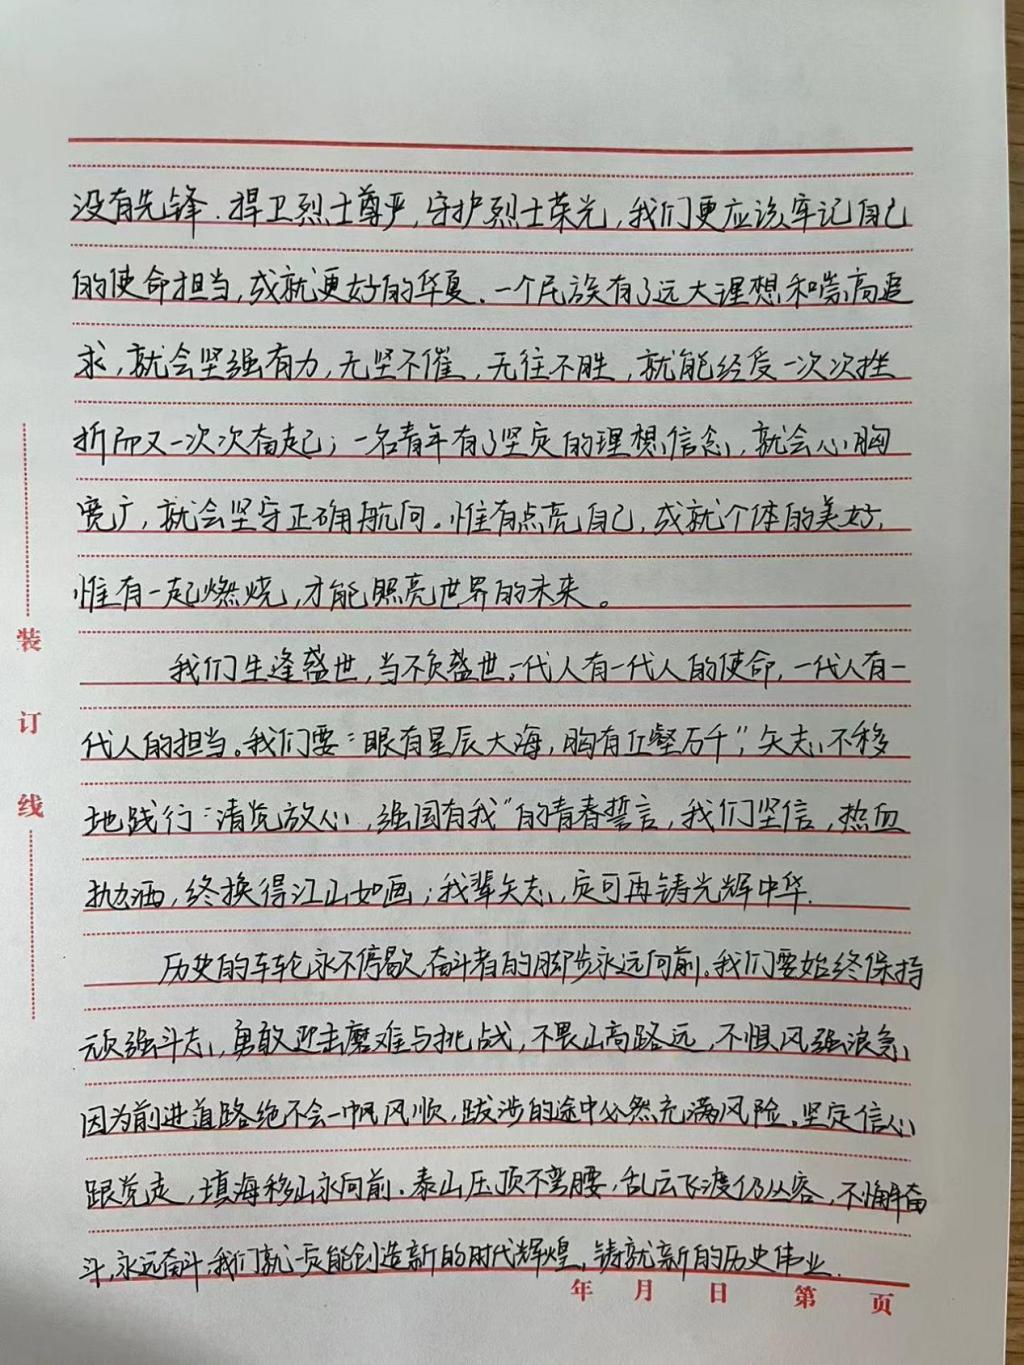 没有先锋．捍卫烈士尊严，守护烈士荣光，我们更应该牢记自己
的使命担当，成就更好的华夏．一个民族有了远大理想和崇高追
求，就会坚强有力，无坚不催，无往不胜，就能经受一次次挫
折而又一次次奋起；一名青年有了坚定的理想信念，就会心胸
宽广，就会坚守正确航向。惟有点亮自己，成就个体的美好，
惟有一起燃烧，才能照亮世界的未来。
我们生逢盛世，当不负盛世。一代人有一代人的使命，一代人有一
代人的担当。我们要“眼有星辰大海，胸有丘壑万千”，矢志不移
地践行“清党放心，强国有我”的青春誓言，我们坚信，热血
抛洒，终换得江山如画；我辈矢志，定可再铸光辉中华．
历史的车轮永不停歇，奋斗者的脚步永远向前。我们要始终保持
顽强斗志，勇敢迎击磨难与挑战，不畏山高路远，不惧风强浪急，
因为前进道路绝不会一帆风顺，跋涉的途中必然充满风险。坚定信心
跟党走，填海移山永向前．泰山压顶不弯腰，乱云飞渡仍从容，不懈奋
斗，永远奋斗，我们就一定能创造新的时代辉煌，铸就新的历史伟业．
装
订
线
年 月 日 第 页